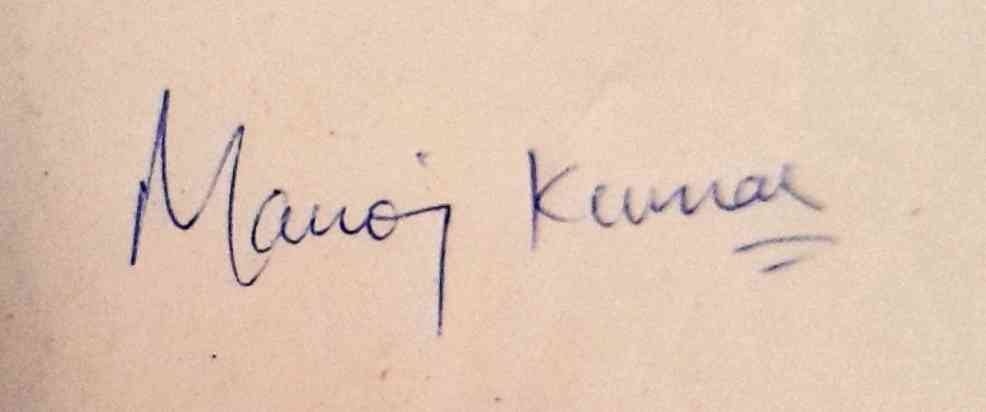 Manoj Kumar